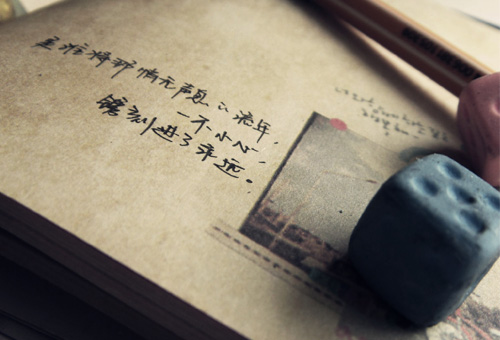 是谁将那悄无声息的流年，
一不小心，
镌刻进了永远。